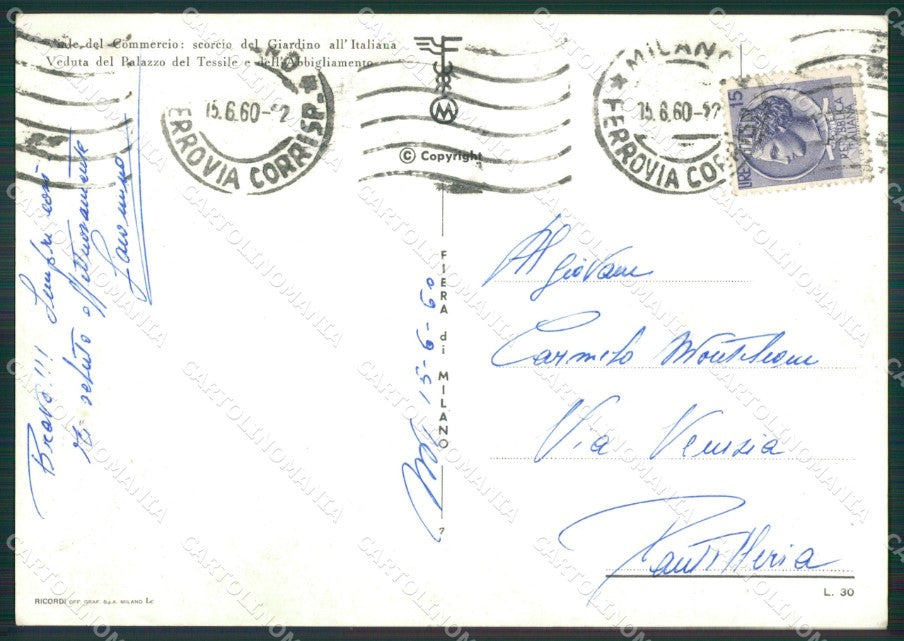 Viale del Commercio: scorcio del Giardino all'Italiana
Veduta del Palazzo del Tessile e dell'Abbigliamento
© Copyright
15.6.60
FERROVIA CORRISP.
MILANO
15.6.60
FERROVIA COR
LIRE 15
FIERA di MILANO
Bravo!!! Sempre così
Ti saluto affettuosamente
15-6-60
Al giovane
Carmelo Monteleone
Via Venezia
Pantelleria
RICORDI OFF. GRAF. S.p.A. MILANO
L. 30
CARTOLINOMANIA